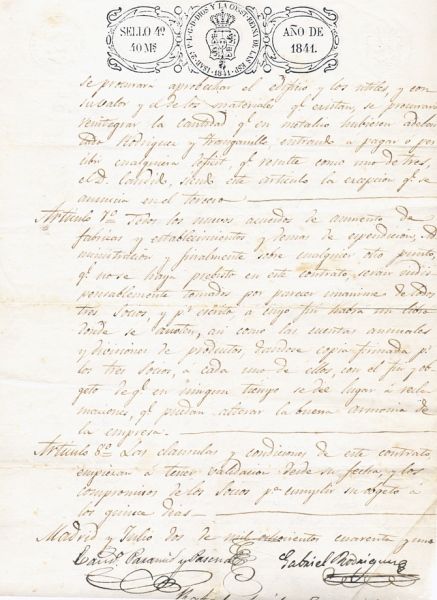 SELLO 4º
40 Mˢ
ISAB. 2ª P. L. G. D DIOS Y LA CONST. REYNA DE LAS ESP.
1841
AÑO DE
1841.
se procurará aprovechar el edificio y los utiles, y con
su valor y el de los materiales qᵉ existan, se procurará
reintegrar la cantidad qᵉ en metalico hubieren adelan
tado Rodriguez y Tranquillo, entrando a pagar o per
cibir cualquiera deficit, qᵉ resulte como uno de tres,
el D. Candido, siendo este articulo la excepcion qᵉ se
anuncia en el tercero
Articulo 7º Todos los nuevos acuerdos de aumento de
fabricas y establecimientos y demas de expendicion, Ad
ministracion y finalmente sobre cualquier otro punto,
qᵉ no se haya prebisto en este contrato, serán indis
pensablemente tomados por parecer unanime de todos
tres Socios, y pʳ escrito a cuyo fin habrá un libro
donde se anoten, asi como las cuentas annuales
y divisiones de productos, dandose copia firmada pʳ
los tres Socios, a cada uno de ellos, con el fin y ob
geto de qᵉ en ningun tiempo se dé lugar a recla
maciones, qᵉ puedan alterar la buena armonia de
la empresa.
Articulo 8º Las clausulas y condiciones de este contrato
empiezan a tener validacion desde su fecha, y los
compromisos de los Socios pᵃ cumplir su objeto a
los quince dias
Madrid y Julio dos de mil ochocientos cuarenta y uno
Gabriel Rodriguez